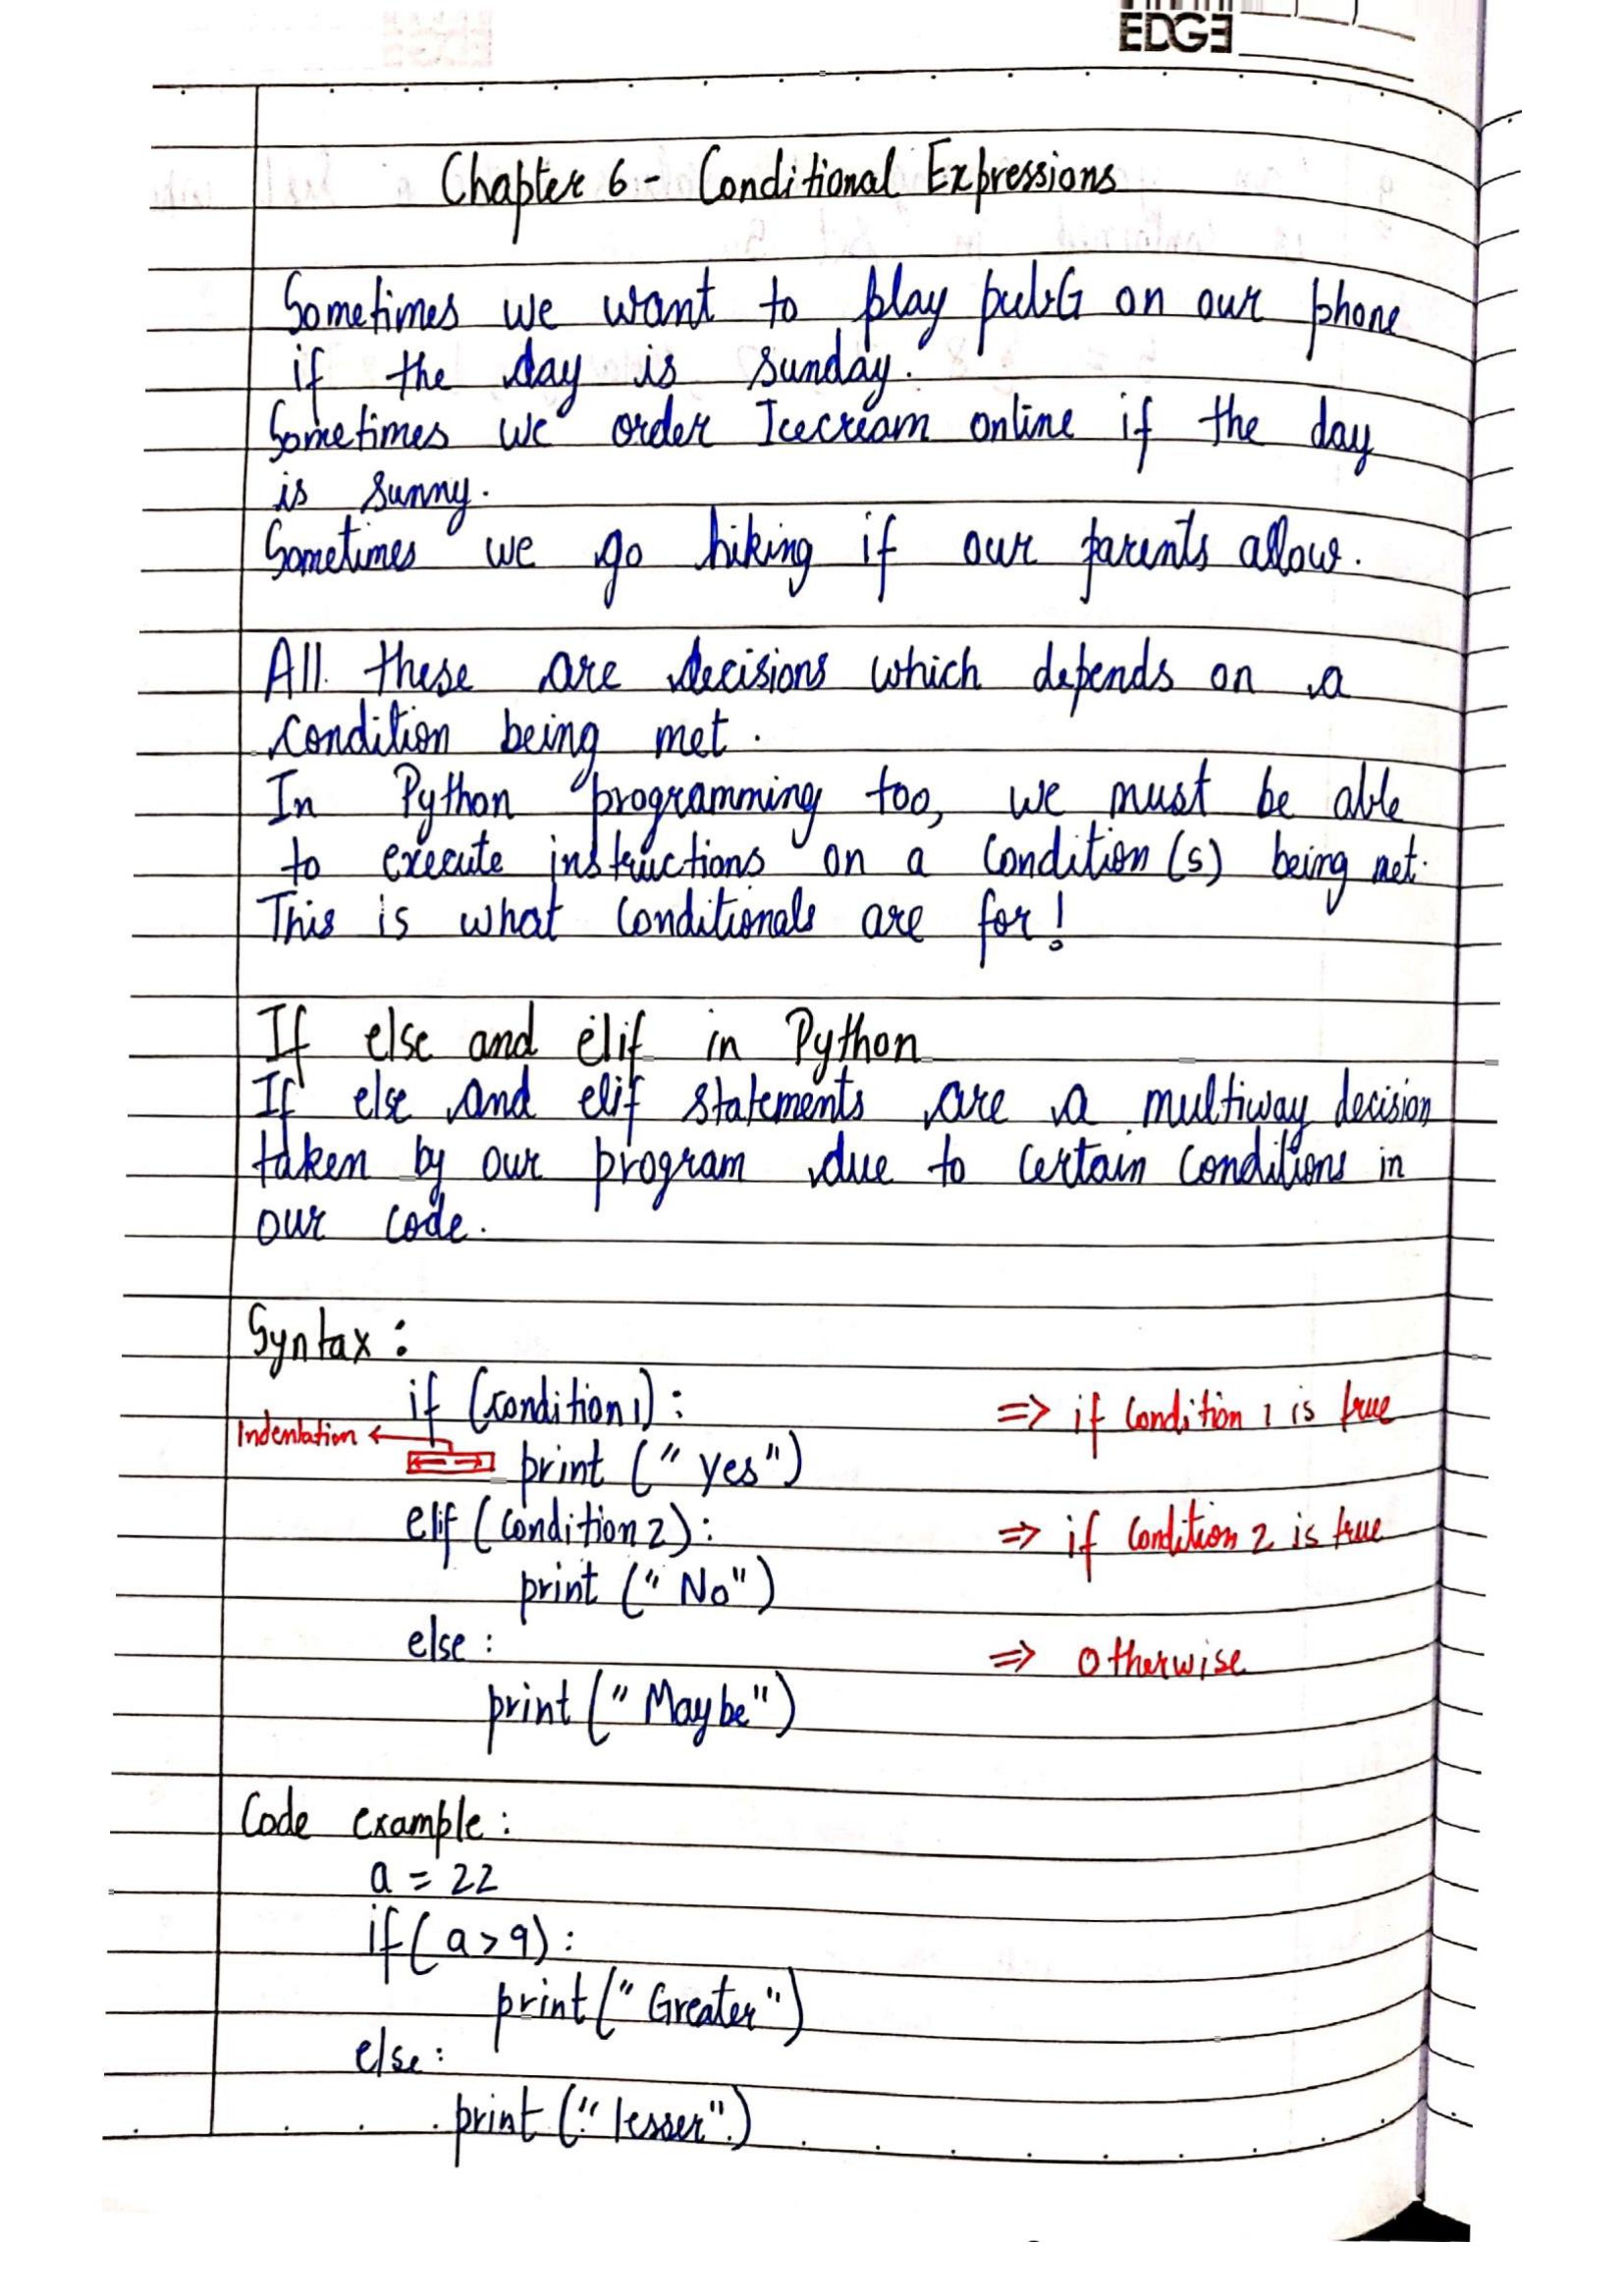 EDGE
Chapter 6 - Conditional Expressions
Sometimes we want to play pubG on our phone
if the day is sunday.
Sometimes we order Icecream online if the day
is sunny.
Sometimes we go hiking if our parents allow.
All these are decisions which depends on a
condition being met.
In Python programming too, we must be able
to execute instructions on a condition(s) being met.
This is what conditionals are for!
If else and elif in Python
If else and elif statements are a multiway decision
taken by our program due to certain conditions in
our code.
Syntax :
if (condition1) : => if condition 1 is true
Indentation
print (" yes")
elif (condition 2) : => if condition 2 is true
print (" No")
else : => otherwise
print (" Maybe")
Code example :
a = 22
if( a > 9) :
print (" Greater")
else :
print (" lesser")